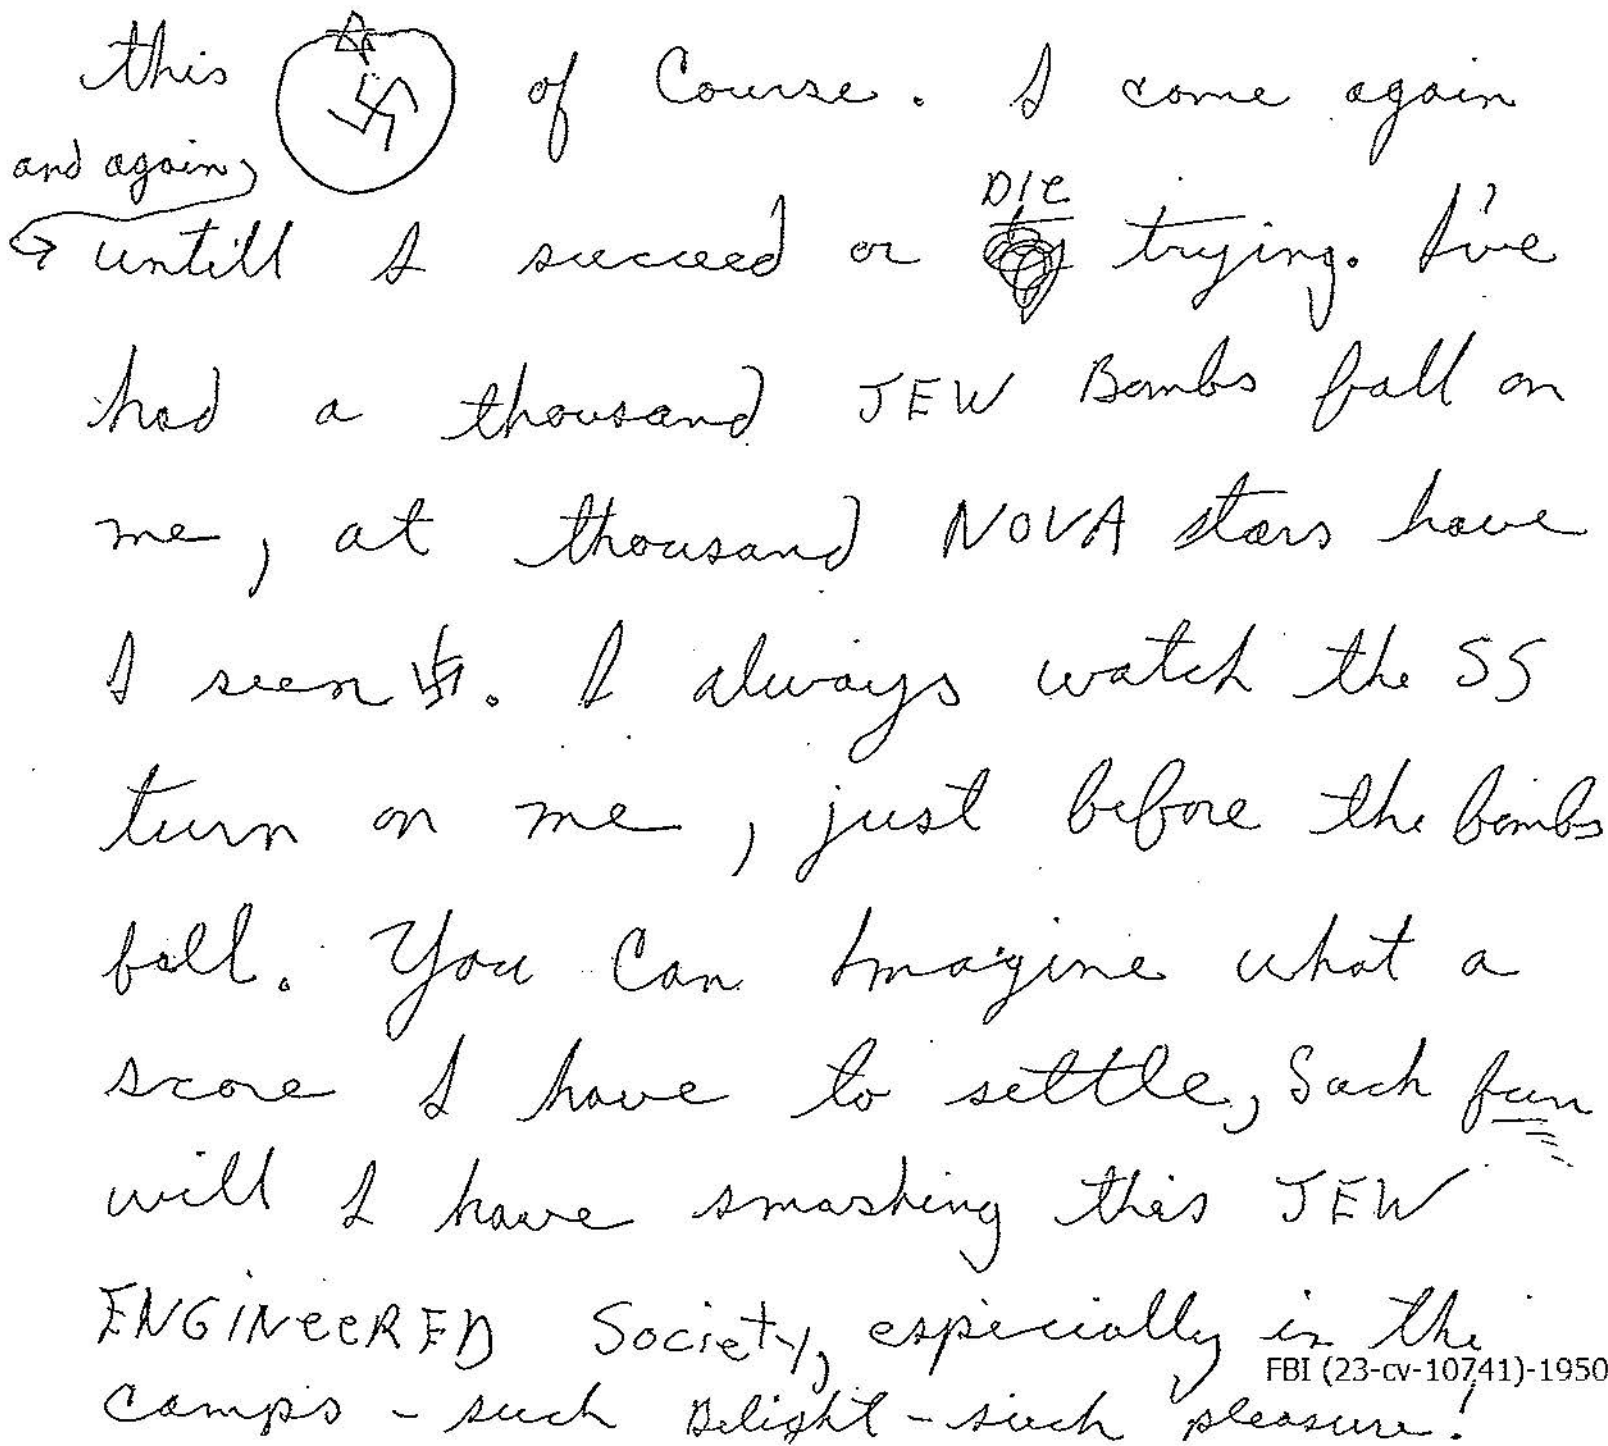 this of Course. I come again
and again,
untill I succeed or DIE trying. I've
had a thousand JEW Bombs fall on
me, at thousand NOVA stars have
I seen 卐. I always watch the SS
turn on me, just before the bombs
fall. You Can Imagine what a
score I have to settle, Such fun
will I have smashing this JEW
ENGINeeRED Society, especially in the
FBI (23-cv-10741)-1950
Camps - such Delight - such pleasure!